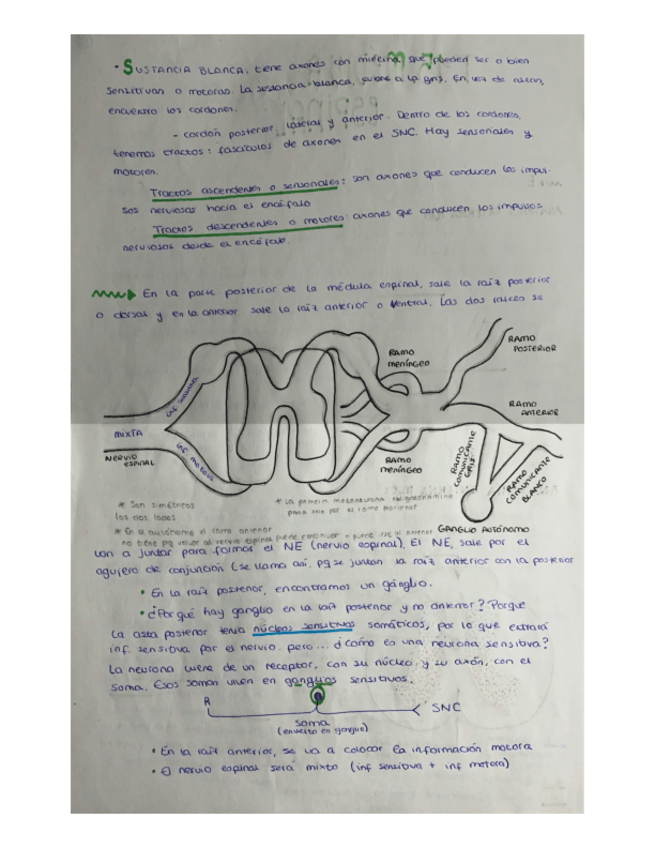 · SUSTANCIA BLANCA: tiene axones con mielina que pueden ser o bien
sensitivan o motoras. La sustancia blanca, a la gris. En vez de astan,
encuentro los cordones.
- cordón posterior, lateral y anterior. Dentro de los cordones,
tenemos tractos: fascículos de axones en el SNC. Hay sensoriales y
motoren.
Tractos ascendentes o sensoriales: son axones que conducen los impul-
sos nerviosas hacia el encéfalo
Tractos descendentes o motores: axones que conducen los impulsos
nerviosas desde el encéfalo.
En la parte posterior de la médula espinal, sale la raíz posterior
o dorsal y en la anterior sale la raíz anterior o ventral. Las dos raíces se
RAMO POSTERIOR
RAMO meníngeo
inf sensitiva
RAMO ANTERIOR
MIXTA
inf motora
NERVIO ESPINAL
RAMO meníngeo
RAMO COMUNICANTE GRIS
RAMO COMUNICANTE BLANCO
* Son simétricos
los dos lados
* La primera
para solo por el ramo
* En el autónomo el ramo anterior
no tiene pq volver al nervio espinal, puede continuar o puede irse al anterior
GANGLIO AUTÓNOMO
van a juntar para formar el NE (nervio espinal). El NE, sale por el
agujero de conjunción (se llama así, pq se juntan la raíz anterior con la posterior
• En la raíz posterior, encontramos un ganglio.
• ¿Por qué hay ganglio en la raíz posterior y no anterior? Porque
la asta posterior tenía núcleos sensitivos somáticos, por lo que entrará
inf. sensitiva por el nervio. pero... ¿cómo es una neurona sensitiva?
La neurona viene de un receptor, con su núcleo y su axón, con el
soma. Esos soman unen en ganglios sensitivos.
R
SNC
SOMA
(envuelto en ganglio)
• En la raíz anterior, se va a colocar la información motora
• El nervio espinal será mixto (inf sensitiva + inf motora)